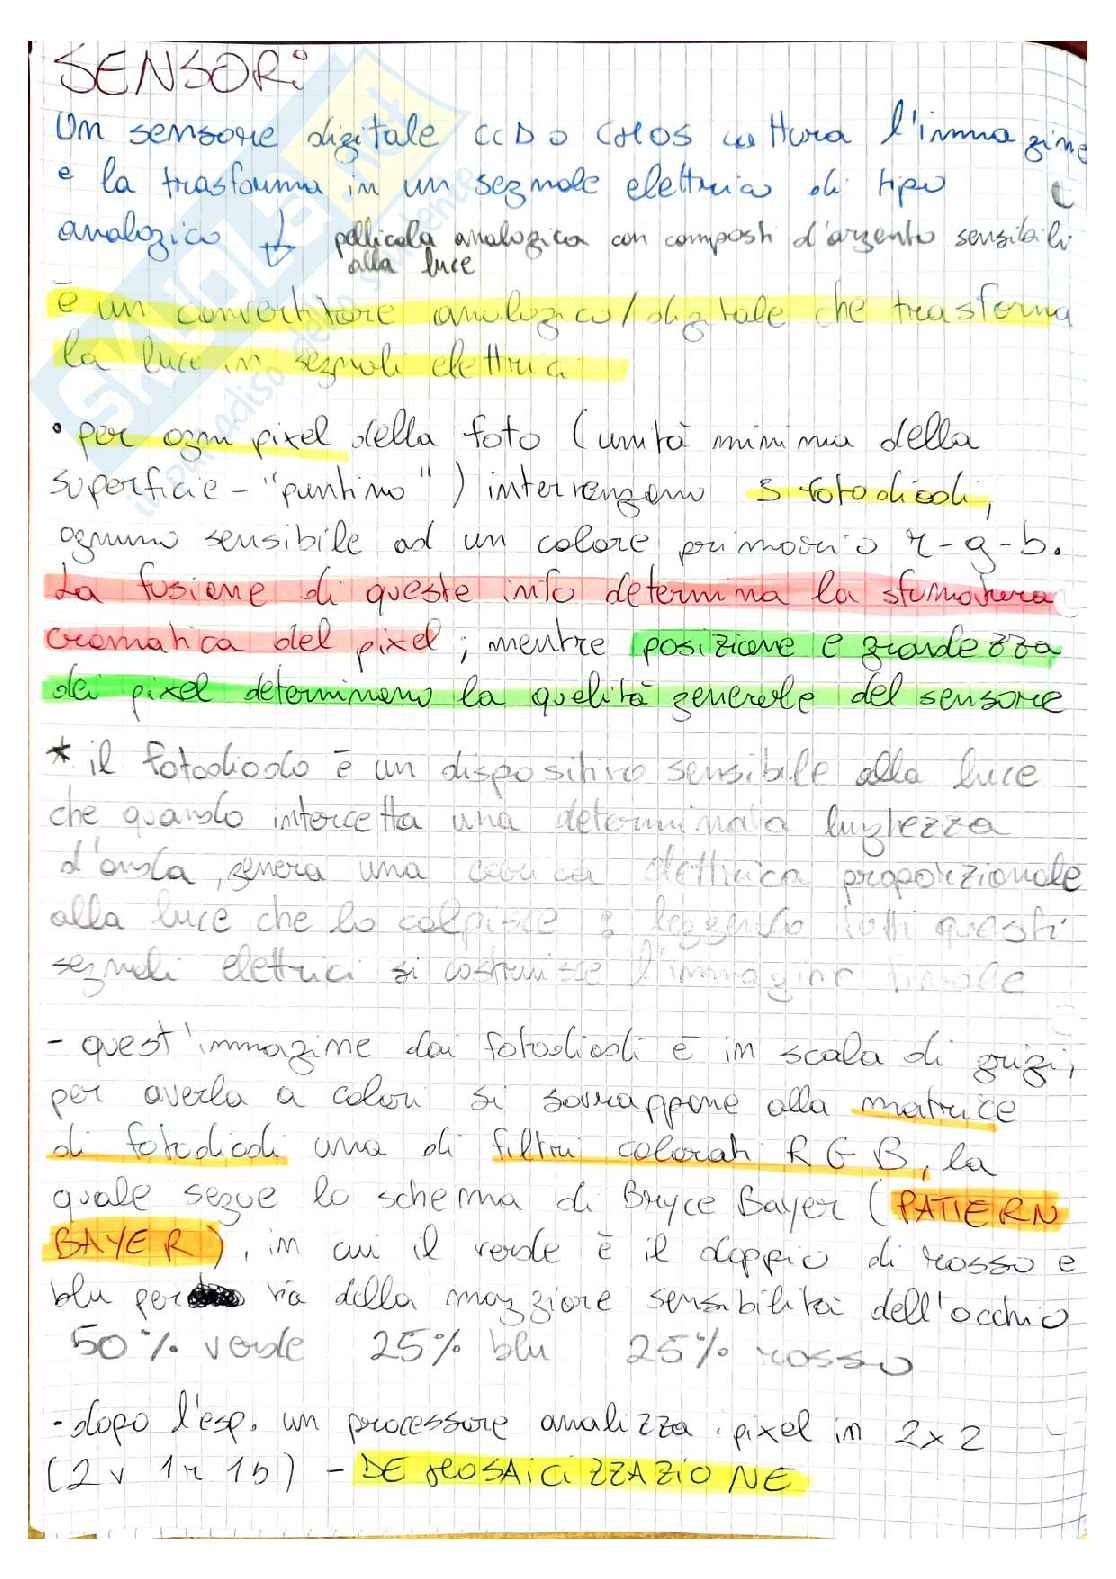 SENSORi
Un sensore digitale CCD o CMOS cattura l'immagine
e la trasforma in un segnale elettrico di tipo
analogico ↓ pellicola analogica con composti d'argento sensibili
alla luce
è un convertitore analogico/digitale che trasforma
la luce in segnali elettrici
• per ogni pixel della foto (unità minima della
superficie - "puntino") intervengono 3 fotodiodi,
ognuno sensibile ad un colore primario r-g-b.
La fusione di queste info determina la sfumatura
cromatica del pixel; mentre posizione e grandezza
dei pixel determinano la qualità generale del sensore
* il fotodiodo è un dispositivo sensibile alla luce
che quando intercetta una determinata lunghezza
d'onda, genera una carica elettrica proporzionale
alla luce che lo colpisce : leggendo tutti questi
segnali elettrici si costruisce l'immagine finale
- quest'immagine dai fotodiodi è in scala di grigi,
per averla a colori si sovrappone alla matrice
di fotodiodi una di filtri colorati RGB, la
quale segue lo schema di Bryce Bayer (PATTERN
BAYER), in cui il verde è il doppio di rosso e
blu per via della maggiore sensibilità dell'occhio
50% verde 25% blu 25% rosso
- dopo l'esp. un processore analizza i pixel in 2x2
(2v 1r 1b) - DEMOSAICIZZAZIONE
SKUOLA.net
il paradiso dello studente